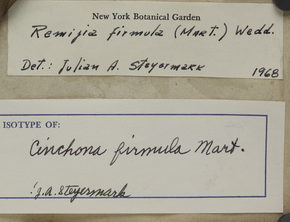 New York Botanical Garden
Remijia firmula (Mart.) Wedd.
Det.: Julian A. Steyermark
1968
ISOTYPE OF:
Cinchona firmula Mart.
! J.A. Steyermark